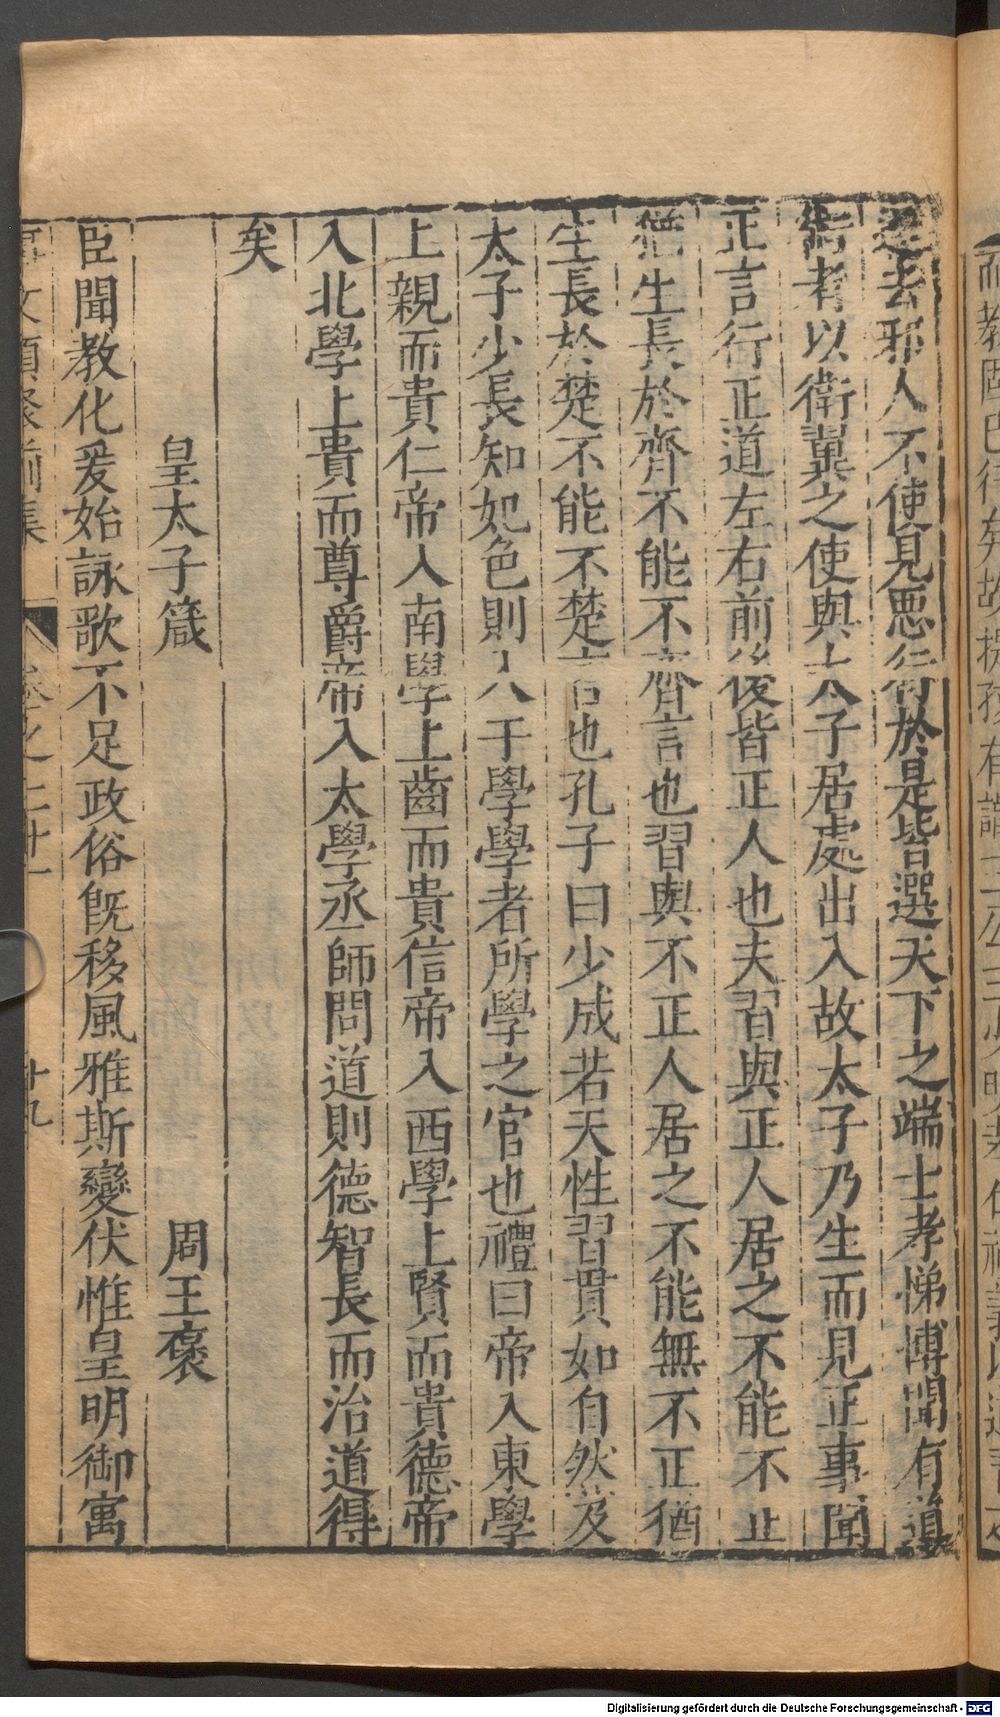 逐去邪人不使見惡行於是皆選天下之端士孝悌博聞有道
術者以衛翼之使與太子居處出入故太子乃生而見正事聞
正言行正道左右前後皆正人也夫習與正人居之不能不正
猶生長於齊不能不齊言也習與不正人居之不能無不正猶
生長於楚不能不楚言也孔子曰少成若天性習貫如自然及
太子少長知妃色則入于學學者所學之官也禮曰帝入東學
上親而貴仁帝入南學上齒而貴信帝入西學上賢而貴德帝
入北學上貴而尊爵帝入太學丞師問道則德智長而治道得
矣
皇太子箴 周王褒
臣聞教化爰始詠歌不足政俗旣移風雅斯變伏惟皇明御寓
事文類聚前集 卷之二廿一 十九
Digitalisierung gefördert durch die Deutsche Forschungsgemeinschaft - DFG